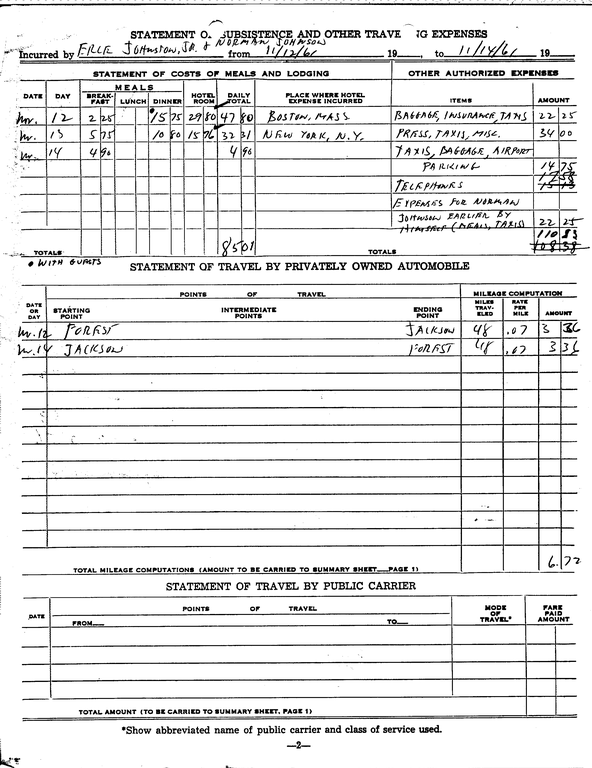 STATEMENT O SUBSISTENCE AND OTHER TRAVE NG EXPENSES
Incurred by ERLE JOHNSTON, JR. & NORMAN JOHNSON from 11/12/61 19 , to 11/14/61 19
STATEMENT OF COSTS OF MEALS AND LODGING OTHER AUTHORIZED EXPENSES
DATE DAY MEALS BREAK-FAST LUNCH DINNER HOTEL ROOM DAILY TOTAL PLACE WHERE HOTEL EXPENSE INCURRED ITEMS AMOUNT
Nov. 12 2 25 *15 75 29 80 47 80 BOSTON, MASS BAGGAGE, INSURANCE, TAXIS 22 25
Nov. 13 5 75 10 80 15 76 32 31 NEW YORK, N.Y. PRESS, TAXIS, MISC. 34 00
Nov. 14 4 90 4 90 TAXIS, BAGGAGE, AIRPORT
PARKING 14 75
17 58
TELEPHONES 15 13
EXPENSES FOR NORMAN
JOHNSON EARLIER BY
HIMSELF (MEALS, TAXIS) 22 25
110 83
TOTALS 85 01 TOTALS 108 38
* WITH GUESTS
STATEMENT OF TRAVEL BY PRIVATELY OWNED AUTOMOBILE
DATE OR DAY POINTS OF TRAVEL MILEAGE COMPUTATION
STARTING POINT INTERMEDIATE POINTS ENDING POINT MILES TRAV-ELED RATE PER MILE AMOUNT
Nov. 12 FOREST JACKSON 48 .07 3 36
Nov. 14 JACKSON FOREST 48 .07 3 36
TOTAL MILEAGE COMPUTATIONS (AMOUNT TO BE CARRIED TO SUMMARY SHEET PAGE 1) 6.72
STATEMENT OF TRAVEL BY PUBLIC CARRIER
DATE POINTS OF TRAVEL MODE OF TRAVEL* FARE PAID AMOUNT
FROM TO
TOTAL AMOUNT (TO BE CARRIED TO SUMMARY SHEET, PAGE 1)
*Show abbreviated name of public carrier and class of service used.
—2—